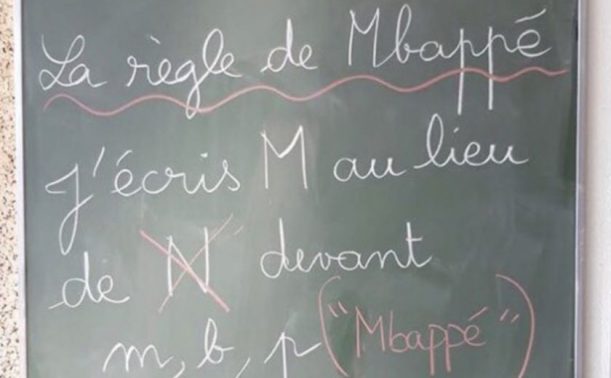 La règle de Mbappé
J'écris M au lieu
de N devant
m, b, p ("Mbappé")